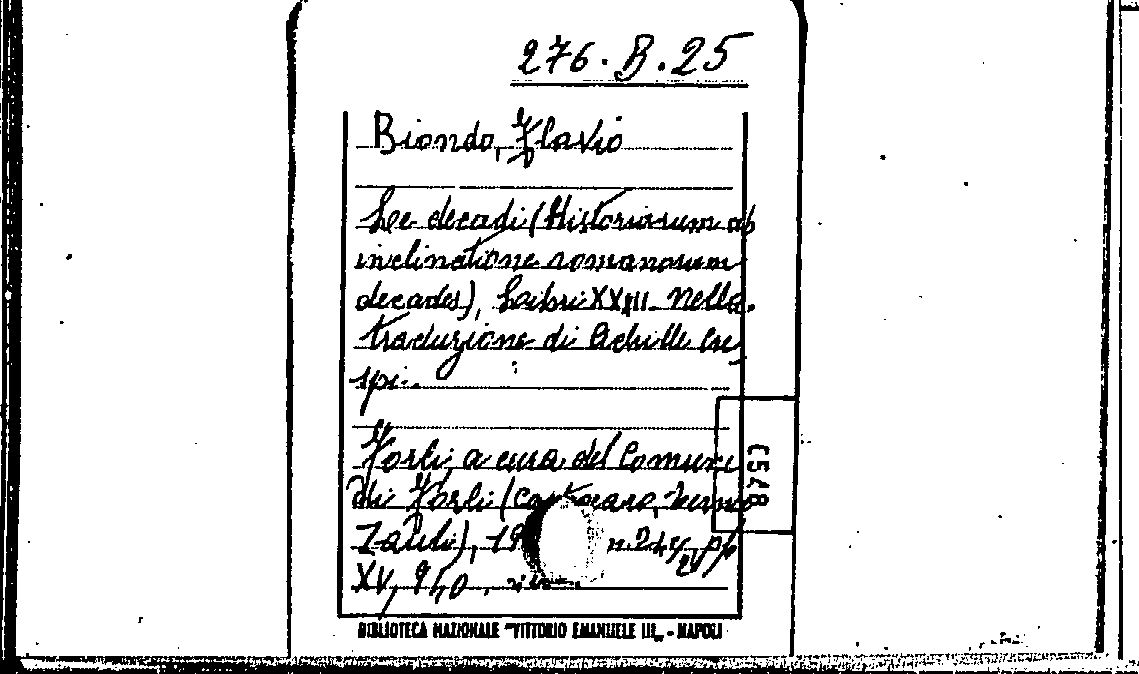 276.B.25
Biondo, Flavio
Le decadi (Historiarum ab
inclinatione romanorum
decades), Libri XXXII. Nella
traduzione di Achille Cre
spi.
Forlì, a cura del Comune
di Forlì (Castrocaro,
Zauli), 19
XV, 940
C5478
BIBLIOTECA NAZIONALE "VITTORIO EMANUELE III„ - NAPOLI